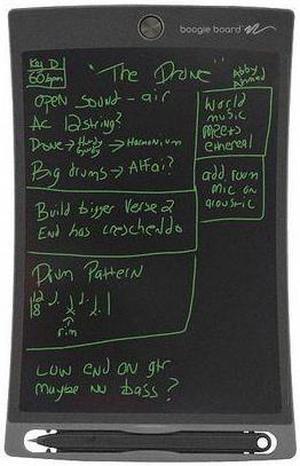 boogie board
Key D
60bpm
"The Drone"
Abby
Ahmad
open sound - air
Ac 12 string?
Drone → Hurdy Gurdy → Harmonium
Big drums → Alfai?
World
music
meets
ethereal
add room
mic on
acoustic
Build bigger Verse 2
End has creschendo
Drum Pattern
12
8
rim
Low end on gtr
maybe no bass?